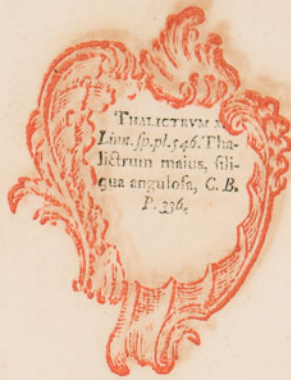 THALICTRVM
Linn. sp. pl. 546. Tha-
lictrum maius, sili-
qua angulosa, C. B.
P. 336.